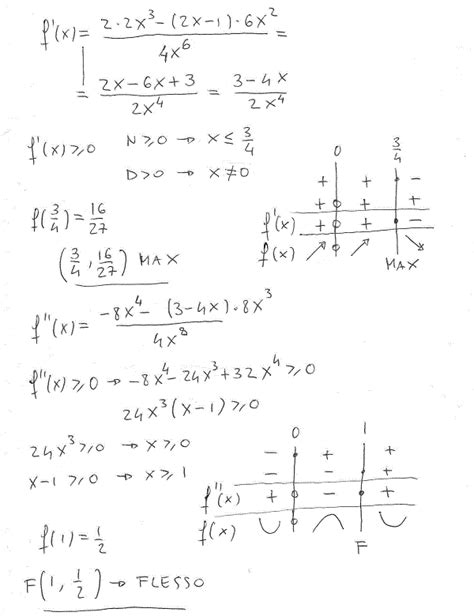 f'(x) = (2·2x³ - (2x-1)·6x²)/(4x⁶) =
= (2x-6x+3)/(2x⁴) = (3-4x)/(2x⁴)
f'(x)≥0 N≥0 → x ≤ 3/4
D>0 → x≠0
0 3/4
+ + -
+ + +
f'(x) + + -
f(x) ↗ ↗ ↘
MAX
f(3/4) = 16/27
(3/4, 16/27) MAX
f''(x) = (-8x⁴ - (3-4x)·8x³)/(4x⁸)
f''(x)≥0 → -8x⁴-24x³+32x⁴≥0
24x³(x-1)≥0
24x³≥0 → x≥0
x-1≥0 → x≥1
0 1
- + +
- - +
f''(x) + - +
f(x) ∪ ∩ ∪
F
f(1) = 1/2
F(1, 1/2) → FLESSO